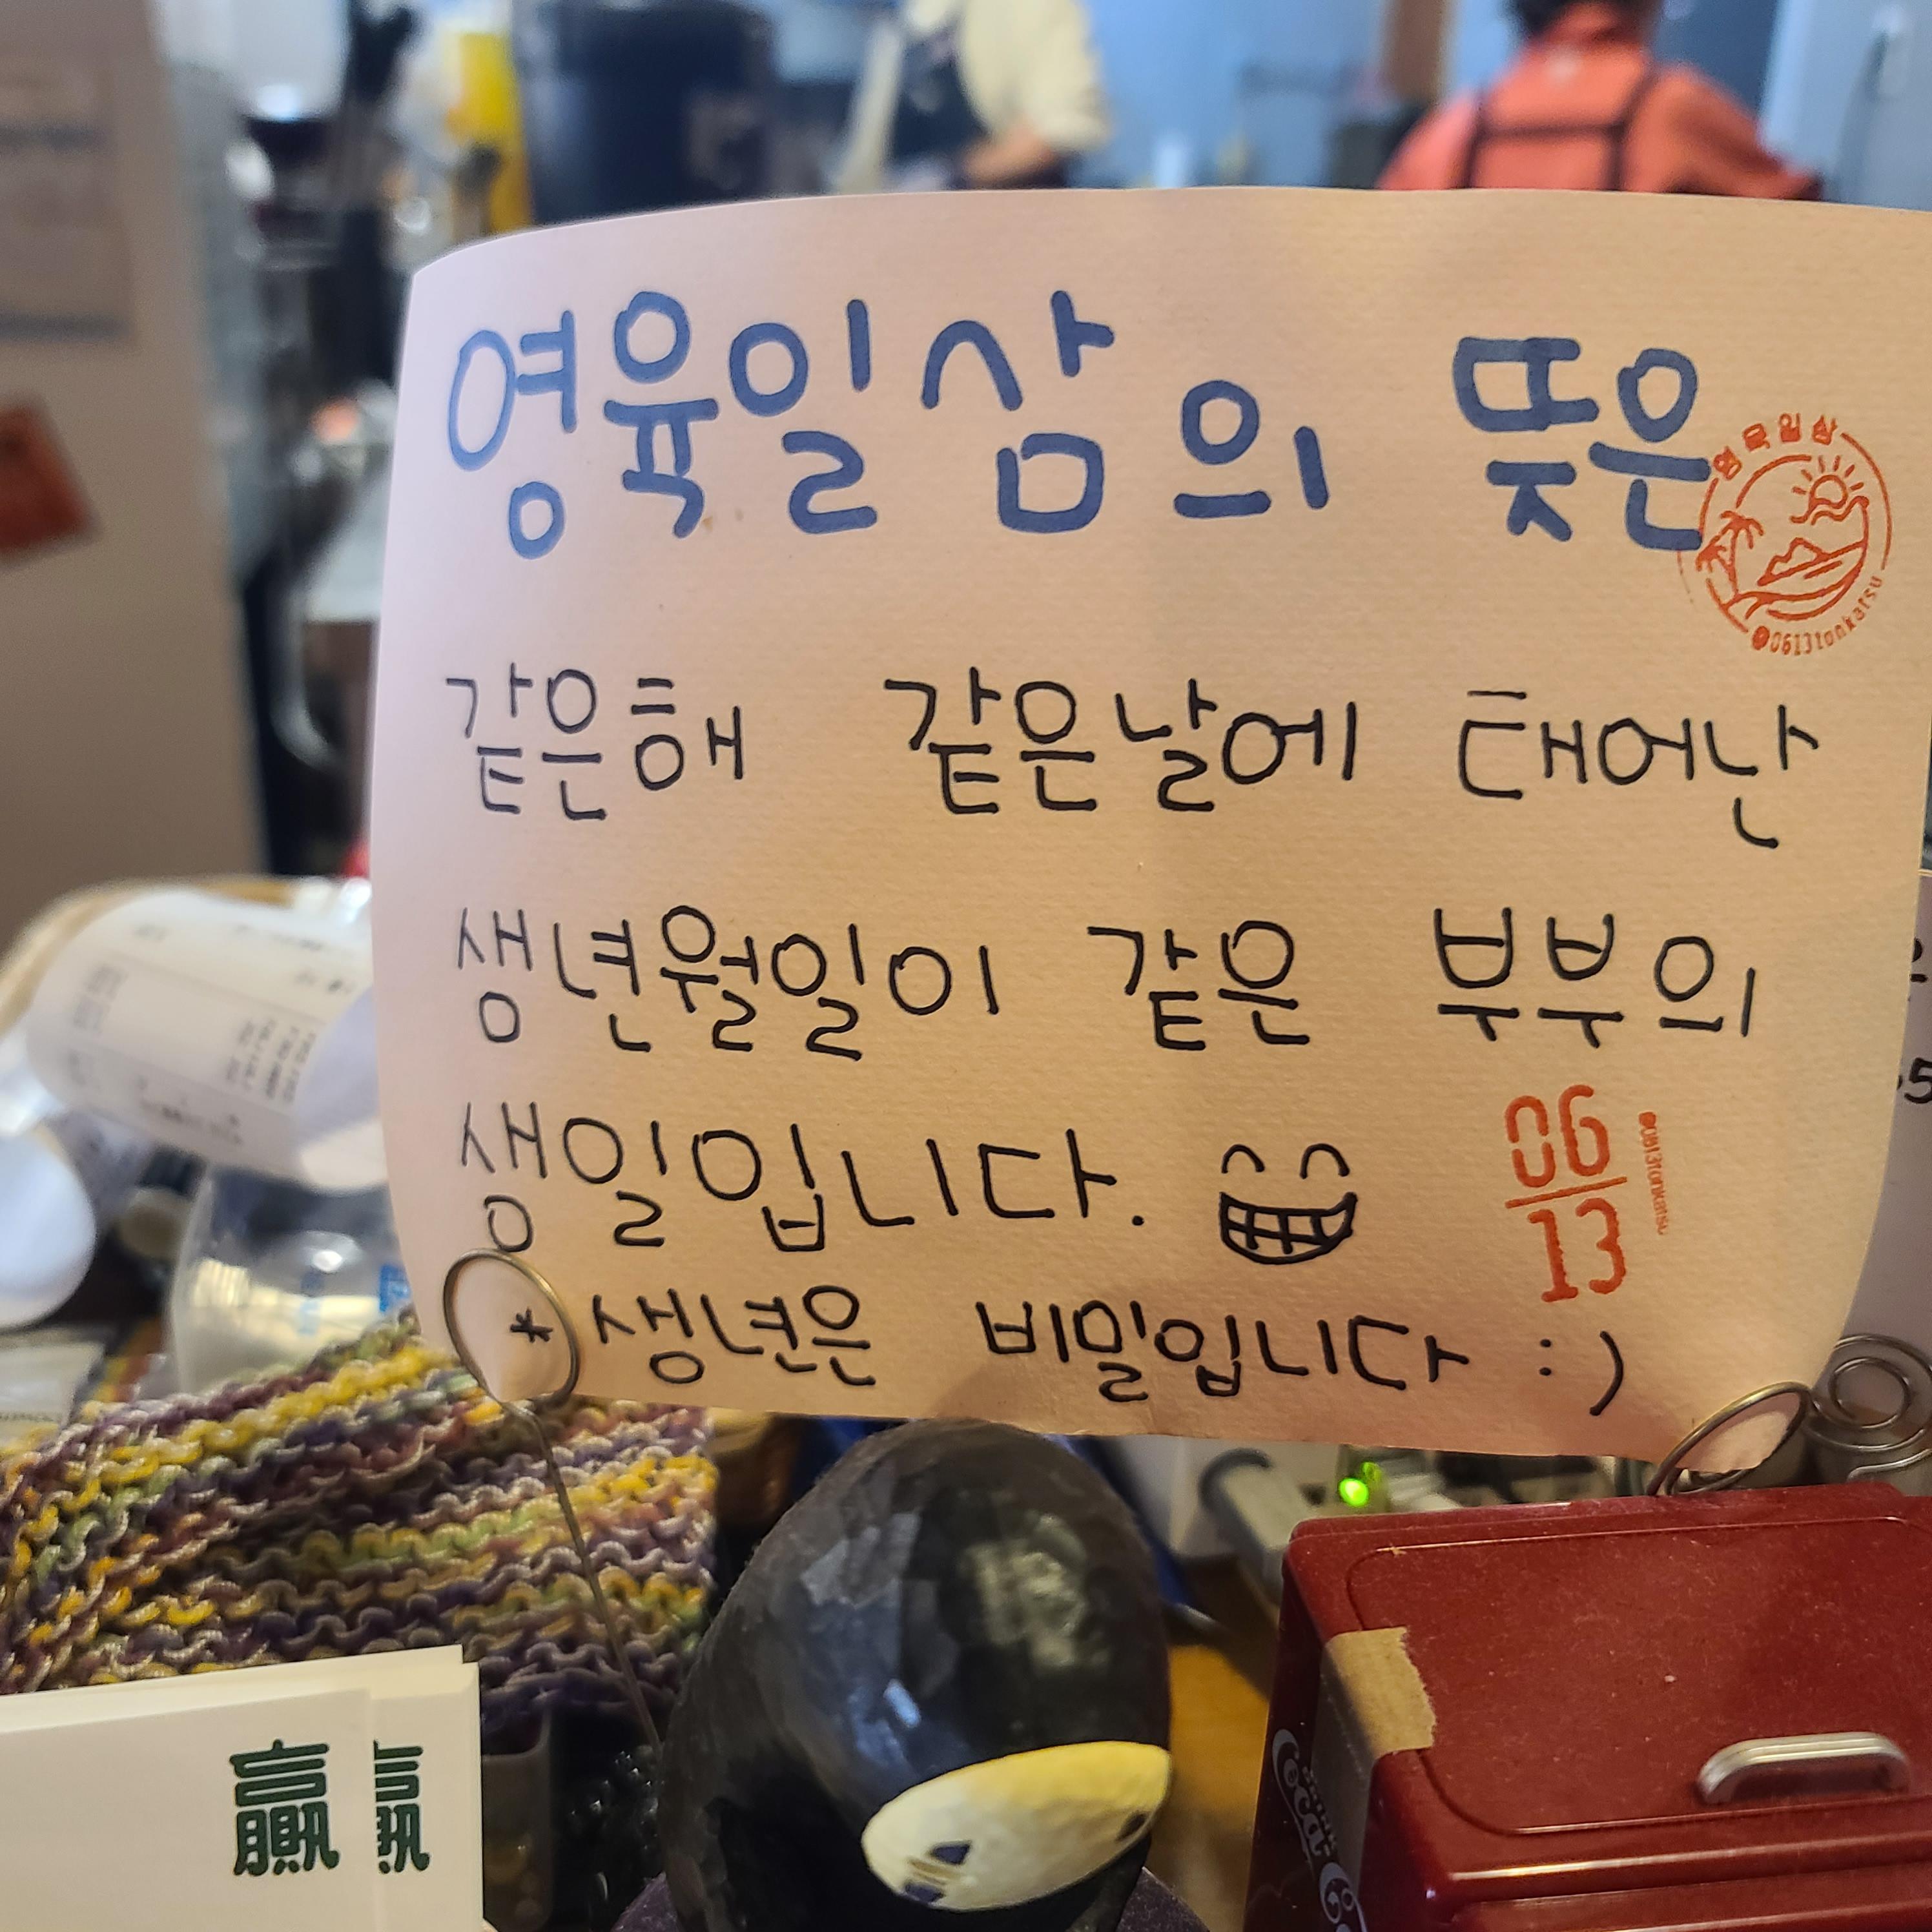 영육일삼의 뜻은
영육일삼
@0613tonkatsu
같은해 같은날에 태어난
생년월일이 같은 부부의
생일입니다.
06
13
@0613tonkatsu
*생년은 비밀입니다 :)
贏
DRINK
Coca-Co